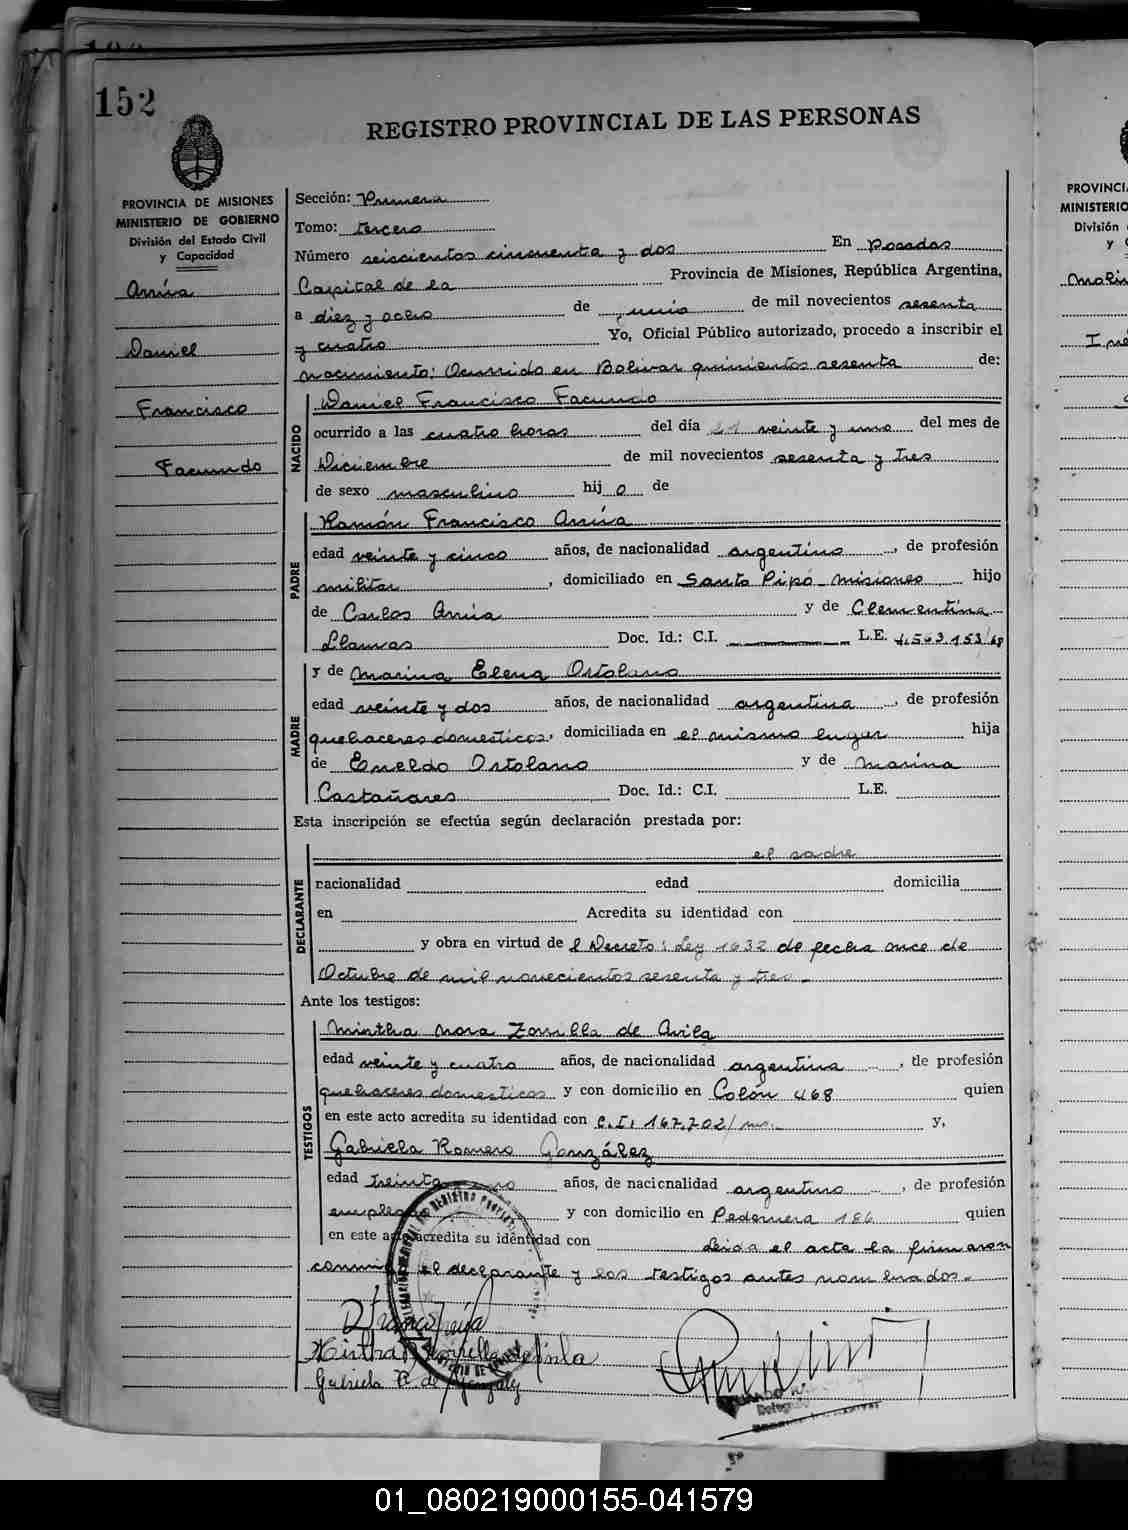 152
REGISTRO PROVINCIAL DE LAS PERSONAS
PROVINCIA DE MISIONES
MINISTERIO DE GOBIERNO
División del Estado Civil
y Capacidad
Daniel
Francisco
Facundo
Sección: Primera
Tomo: tercero
Número seiscientos cincuenta y dos En Posadas
Capital de la Provincia de Misiones, República Argentina,
a diez y ocho de junio de mil novecientos sesenta
y cuatro Yo, Oficial Público autorizado, procedo a inscribir el
nacimiento: Ocurrido en Bolivar quinientos sesenta de:
NACIDO
Daniel Francisco Facundo
ocurrido a las cuatro horas del día 21 veinte y uno del mes de
Diciembre de mil novecientos sesenta y tres
de sexo masculino hijo de
PADRE
Ramón Francisco
edad veinte y cinco años, de nacionalidad argentino, de profesión
militar, domiciliado en Santo Pipó - Misiones hijo
de Carlos y de Clementina
Llamas Doc. Id.: C.I. L.E.
MADRE
y de Marina Elena Ortolano
edad veinte y dos años, de nacionalidad argentina, de profesión
quehaceres domesticos, domiciliada en el mismo lugar hija
de Eneldo Ortolano y de Marina
Castañares Doc. Id.: C.I. L.E.
Esta inscripción se efectúa según declaración prestada por:
DECLARANTE
el padre
nacionalidad edad domicilia
en Acredita su identidad con
y obra en virtud de l Decreto: Ley 1632 de fecha once de
Octubre de mil novecientos sesenta y tres.-
Ante los testigos:
TESTIGOS
Mirtha Nora Zorrilla de Avila
edad veinte y cuatro años, de nacionalidad argentina, de profesión
quehaceres domesticos y con domicilio en Colón 468 quien
en este acto acredita su identidad con C.I. 167.702/ y,
Gabriela Romero González
edad treinta años, de nacicnalidad argentino, de profesión
y con domicilio en Pedernera 186 quien
en este acto acredita su identidad con Leida el acta la firmaron
el declarante y los testigos antes nombrados.-
Gabriela R. de Gonzalez
PROVINCI
MINISTERIO
División
y C
01_080219000155-041579